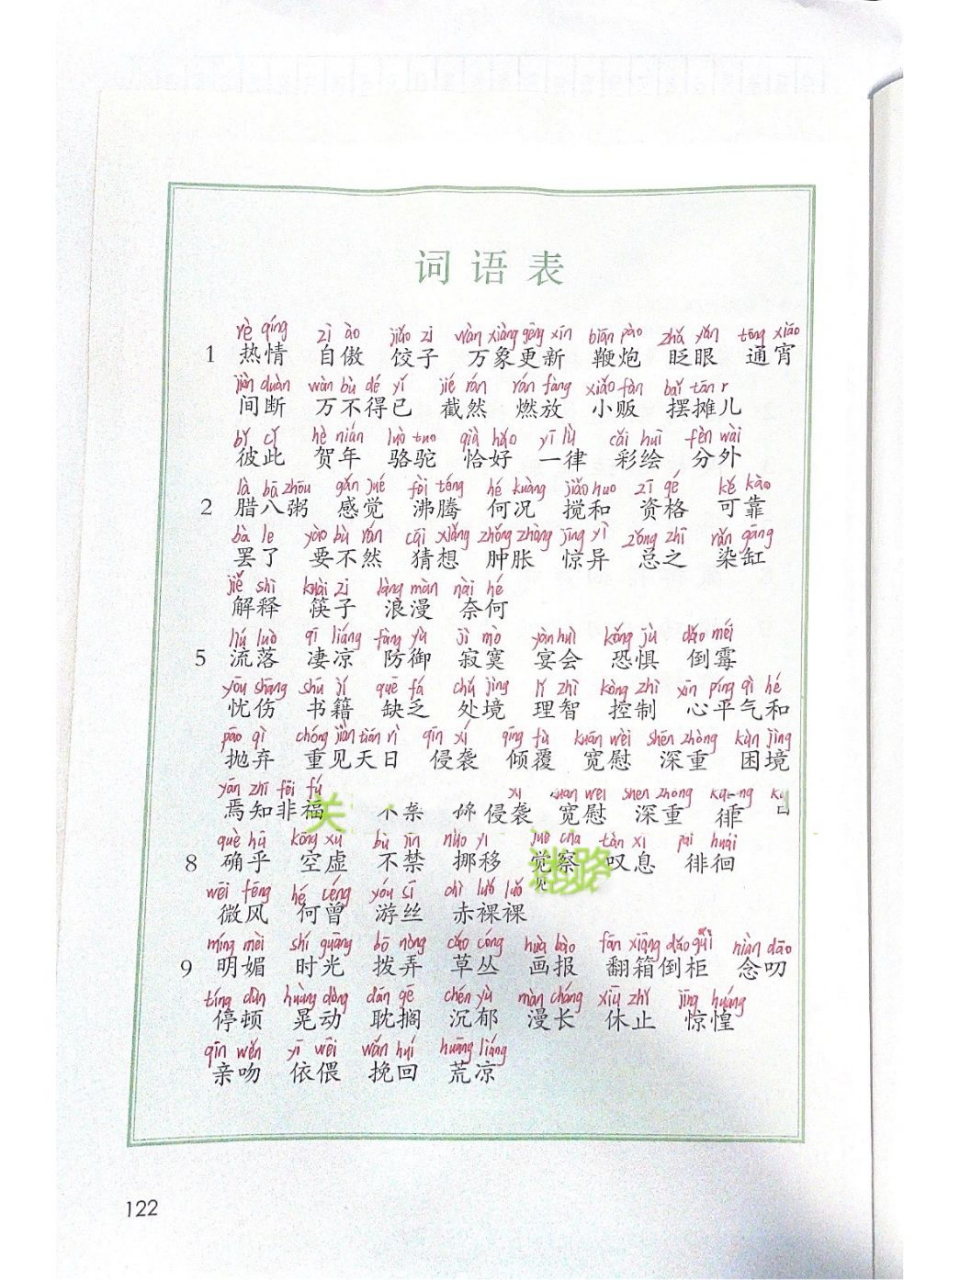 词语表
rè qíng zì ào jiǎo zi wàn xiàng gēng xīn biān pào zhǎ yǎn tōng xiāo
1 热情 自傲 饺子 万象更新 鞭炮 眨眼 通宵
jiàn duàn wàn bù dé yǐ jié rán rán fàng xiǎo fàn bǎi tān r
间断 万不得已 截然 燃放 小贩 摆摊儿
bǐ cǐ hè nián luò tuo qià hǎo yī lǜ cǎi huì fèn wài
彼此 贺年 骆驼 恰好 一律 彩绘 分外
là bā zhōu gǎn jué fèi téng hé kuàng jiǎo huo zī gé kě kào
2 腊八粥 感觉 沸腾 何况 搅和 资格 可靠
bà le yào bù rán cāi xiǎng zhǒng zhàng jīng yì zǒng zhī rǎn gāng
罢了 要不然 猜想 肿胀 惊异 总之 染缸
jiě shì kuài zi làng màn nài hé
解释 筷子 浪漫 奈何
liú luò qī liáng fáng yù jì mò yàn huì kǒng jù dǎo méi
5 流落 凄凉 防御 寂寞 宴会 恐惧 倒霉
yōu shāng shū jí quē fá chǔ jìng lǐ zhì kòng zhì xīn píng qì hé
忧伤 书籍 缺乏 处境 理智 控制 心平气和
pāo qì chóng jiàn tiān rì qīn xí qīng fù kuān wèi shēn zhòng kùn jìng
抛弃 重见天日 侵袭 倾覆 宽慰 深重 困境
yān zhī fēi fú
焉知非福 关 侵袭 宽慰 深重
què hū kōng xū bù jīn nuó yí jué chá tàn xī pái huái
8 确乎 空虚 不禁 挪移 觉察 叹息 徘徊
wēi fēng hé céng yóu sī chì luǒ luǒ
微风 何曾 游丝 赤裸裸
míng mèi shí guāng bō nòng cǎo cóng huà bào fān xiāng dǎo guì niàn dāo
9 明媚 时光 拨弄 草丛 画报 翻箱倒柜 念叨
tíng dùn huàng dòng dān gē chén yù màn cháng xiū zhǐ jīng huáng
停顿 晃动 耽搁 沉郁 漫长 休止 惊惶
qīn wěn yī wēi wǎn huí huāng liáng
亲吻 依偎 挽回 荒凉
122